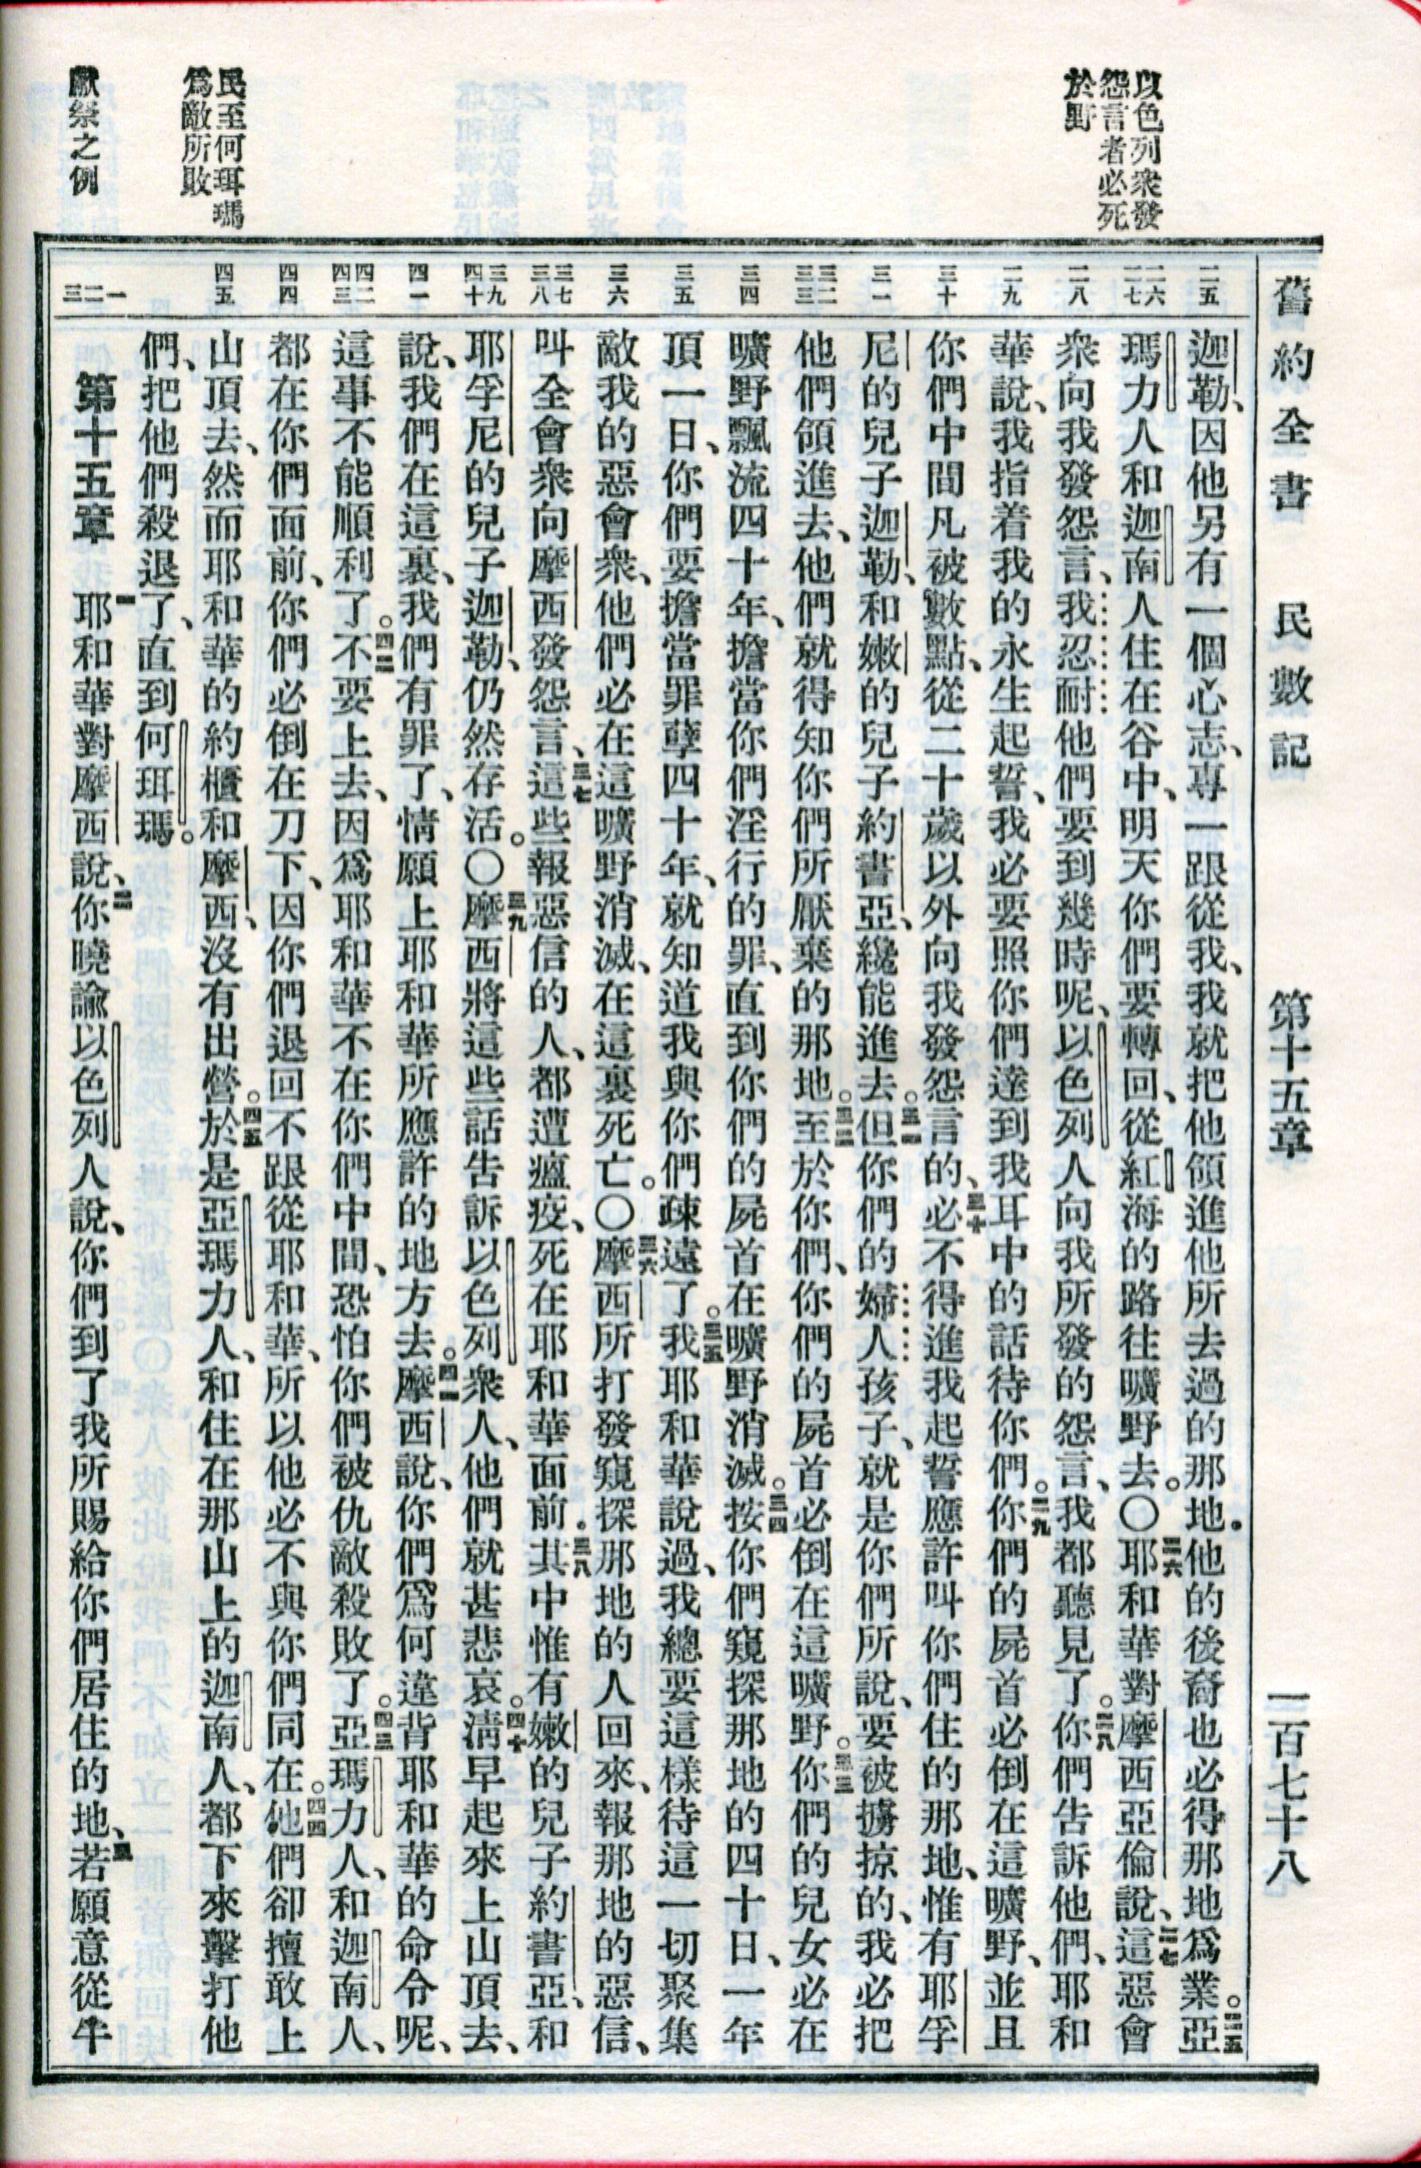 舊約全書 民數記 第十五章 一百七十八
以色列衆發
怨言者必死
於野
民至何珥瑪
爲敵所敗
獻祭之例
二五
二六 二七
二八
二九
三十
三一
三二 三三
三四
三五
三六
三七 三八
三九 四十
四一
四二 四三
四四
四五
一 二 三
迦勒、因他另有一個心志、專一跟從我、我就把他領進他所去過的那地.他的後裔也必得那地爲業。二五亞
瑪力人和迦南人住在谷中、明天你們要轉回、從紅海的路往曠野去。〇二六耶和華對摩西亞倫說、二七這惡會
衆向我發怨言、我忍耐他們要到幾時呢、以色列人向我所發的怨言、我都聽見了。二八你們告訴他們、耶和
華說、我指着我的永生起誓、我必要照你們達到我耳中的話待你們。二九你們的屍首必倒在這曠野、並且
你們中間凡被數點、從二十歲以外向我發怨言的、三十必不得進我起誓應許叫你們住的那地、惟有耶孚
尼的兒子迦勒、和嫩的兒子約書亞、纔能進去。三一但你們的婦人孩子、就是你們所說、要被擄掠的、我必把
他們領進去、他們就得知你們所厭棄的那地。三二至於你們、你們的屍首必倒在這曠野。三三你們的兒女必在
曠野飄流四十年、擔當你們淫行的罪、直到你們的屍首在曠野消滅。三四按你們窺探那地的四十日、一年
頂一日、你們要擔當罪孽四十年、就知道我與你們疎遠了。三五我耶和華說過、我總要這樣待這一切聚集
敵我的惡會衆、他們必在這曠野消滅、在這裏死亡。〇三六摩西所打發窺探那地的人回來、報那地的惡信、
叫全會衆向摩西發怨言、三七這些報惡信的人、都遭瘟疫、死在耶和華面前.三八其中惟有嫩的兒子約書亞、和
耶孚尼的兒子迦勒、仍然存活。〇三九摩西將這些話告訴以色列衆人、他們就甚悲哀。四十淸早起來上山頂去、
說、我們在這裏、我們有罪了、情願上耶和華所應許的地方去。四一摩西說、你們爲何違背耶和華的命令呢、
這事不能順利了。四二不要上去、因爲耶和華不在你們中間、恐怕你們被仇敵殺敗了。四三亞瑪力人、和迦南人、
都在你們面前、你們必倒在刀下、因你們退回不跟從耶和華、所以他必不與你們同在。四四他們卻擅敢上
山頂去、然而耶和華的約櫃和摩西、沒有出營。四五於是亞瑪力人、和住在那山上的迦南人、都下來擊打他
們、把他們殺退了、直到何珥瑪。
第十五章 一耶和華對摩西說、二你曉諭以色列人說、你們到了我所賜給你們居住的地、三若願意從牛